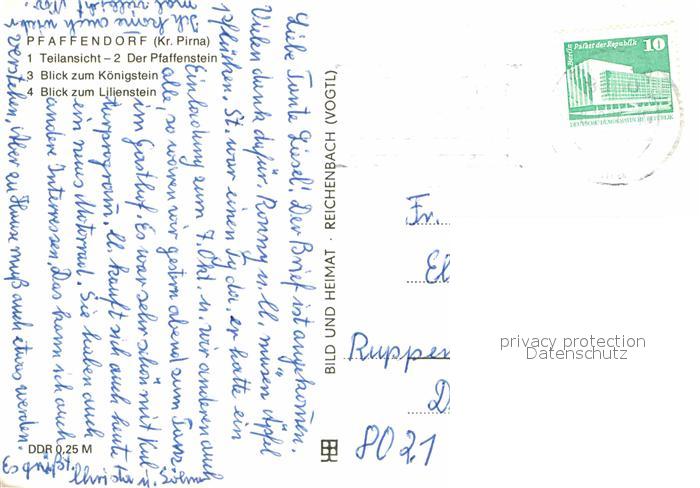 PFAFFENDORF (Kr. Pirna)
1 Teilansicht – 2 Der Pfaffenstein
3 Blick zum Königstein
4 Blick zum Lilienstein
Liebe Tante Liesel! Der Brief ist angekommen.
Vielen dank dafür. Ronny u. U. müssen Äpfel
pflücken. St. war einen Tg da, er hatte ein
Einladung zum 7. Okt. u. wir anderen auch
alle, so waren wir gestern abend zum Tanz
im Gasthof. Es war sehr schön mit Kul
turprogram. U. kauft sich auch heute
ein neues Motorrad. Sie haben auch
andere Interessen. Das kann ich auch
verstehen, Aber zu Hause muß auch etwas werden.
Ich komme auch wieder
mal
Christa u.
DDR 0,25 M
BILD UND HEIMAT · REICHENBACH (VOGTL)
Berlin Palast der Republik 10
DEUTSCHE DEMOKRATISCHE REPUBLIK
Fr.
El
Ruppen
D
8021
privacy protection
Datenschutz